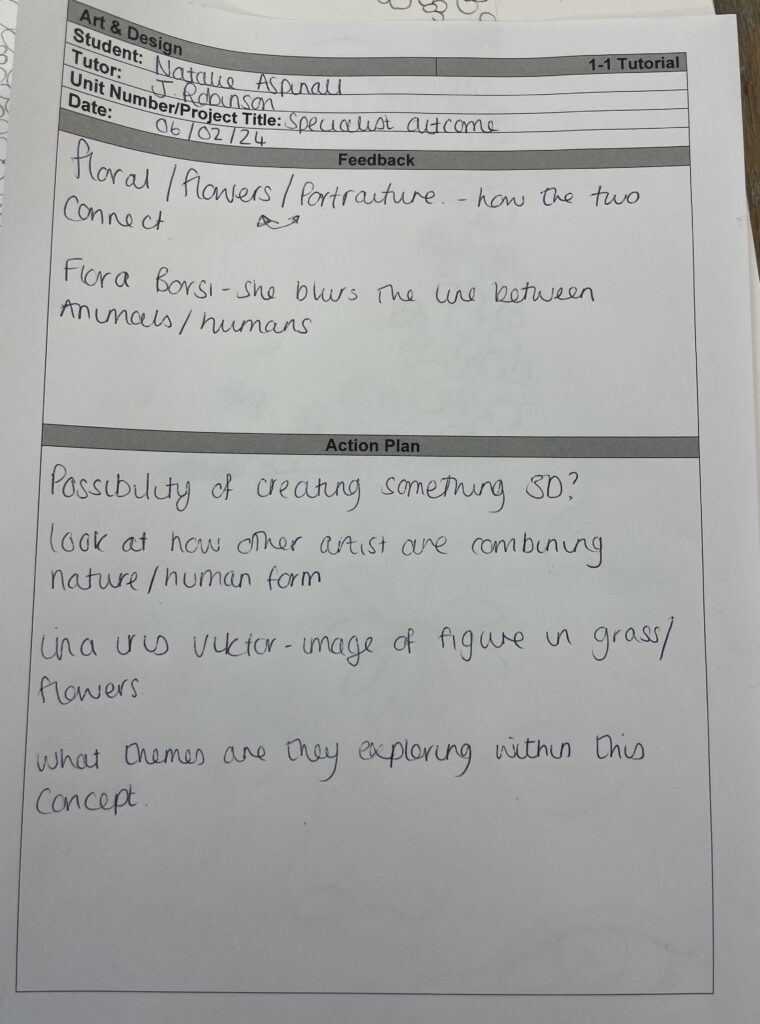 Art & Design
1-1 Tutorial
Student: Natalie Aspinall
Tutor: J. Robinson
Unit Number/Project Title: Specialist outcome
Date: 06/02/24
Feedback
floral/flowers/Portraiture. - how the two
Connect
Flora Borsi - she blurs the line between
Animals/humans
Action Plan
Possibility of creating something 3D?
look at how other artist are combining
nature/human form
Lina iris viktor - image of figure in grass/
flowers.
What themes are they exploring within this
Concept.